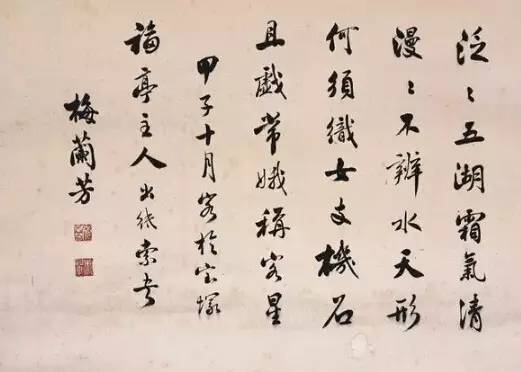 泛〻五湖霜氣清
漫〻不辨水天形
何須織女支機石
且戲常娥稱客星
甲子十月客於宝塚
福亭主人出紙索書
梅蘭芳